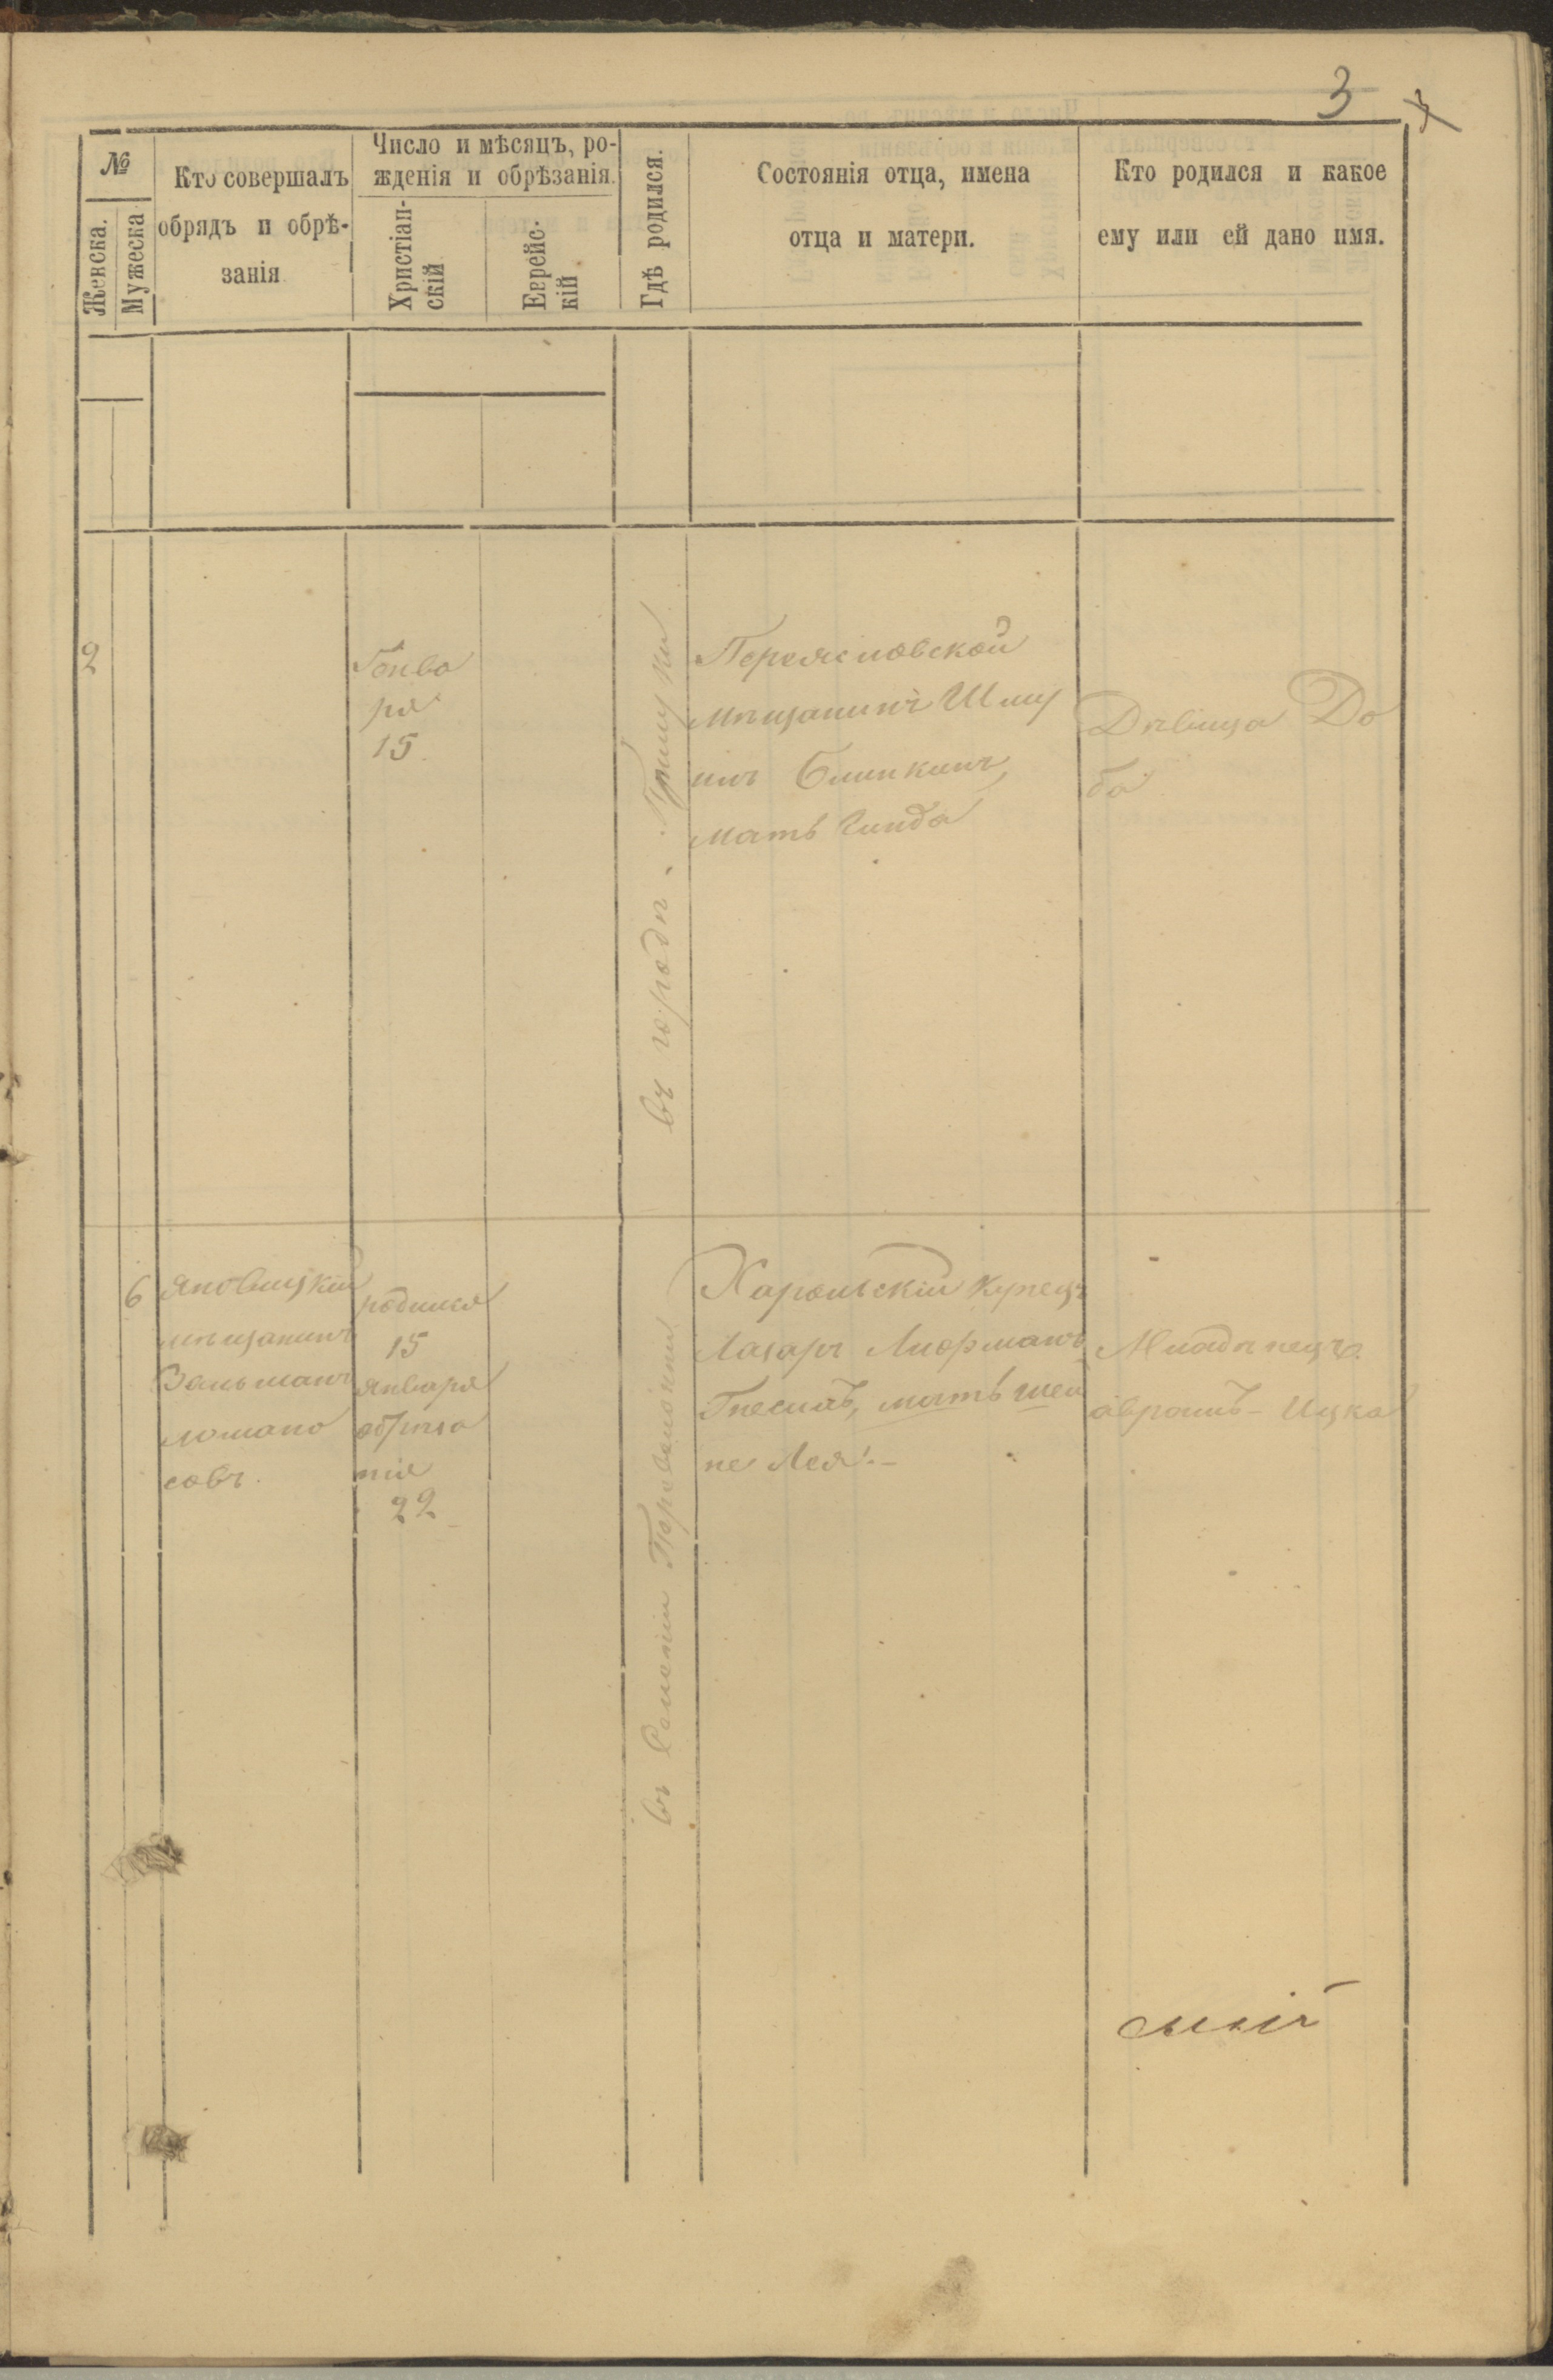 3
№
Женска.
Мужеска
Кто совершалъ
обрядъ и обрѣ-
занія
Число и мѣсяцъ, ро-
жденія и обрѣзанія.
Христіан-
скій
Еврейс-
кій
Гдѣ родился.
Состоянія отца, имена
отца и матери.
Кто родился и какое
ему или ей дано имя.
2
Генва
ря
15
въ городѣ
Переясловской
мѣщанинъ Шму
илъ Блинкинъ,
мать Гинда
Дѣвица До
ба
6
Яновицкій
мѣщанинъ
Залманъ
ломано
совъ.
родился
15
Января
обрѣза
ніе
22
въ Селеніи
Харольскій купецъ
Лазаръ Люрманъ
мать Шей
не Лея.-
Младѣнецъ
Аврамъ-Ицка